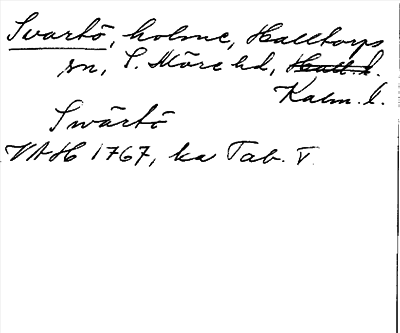 Svartö, holme, Halltorps
sn, S. Möre hd, Hall. l.
Kalm. l.
Swärtö
VAH 1767, ka Tab. V